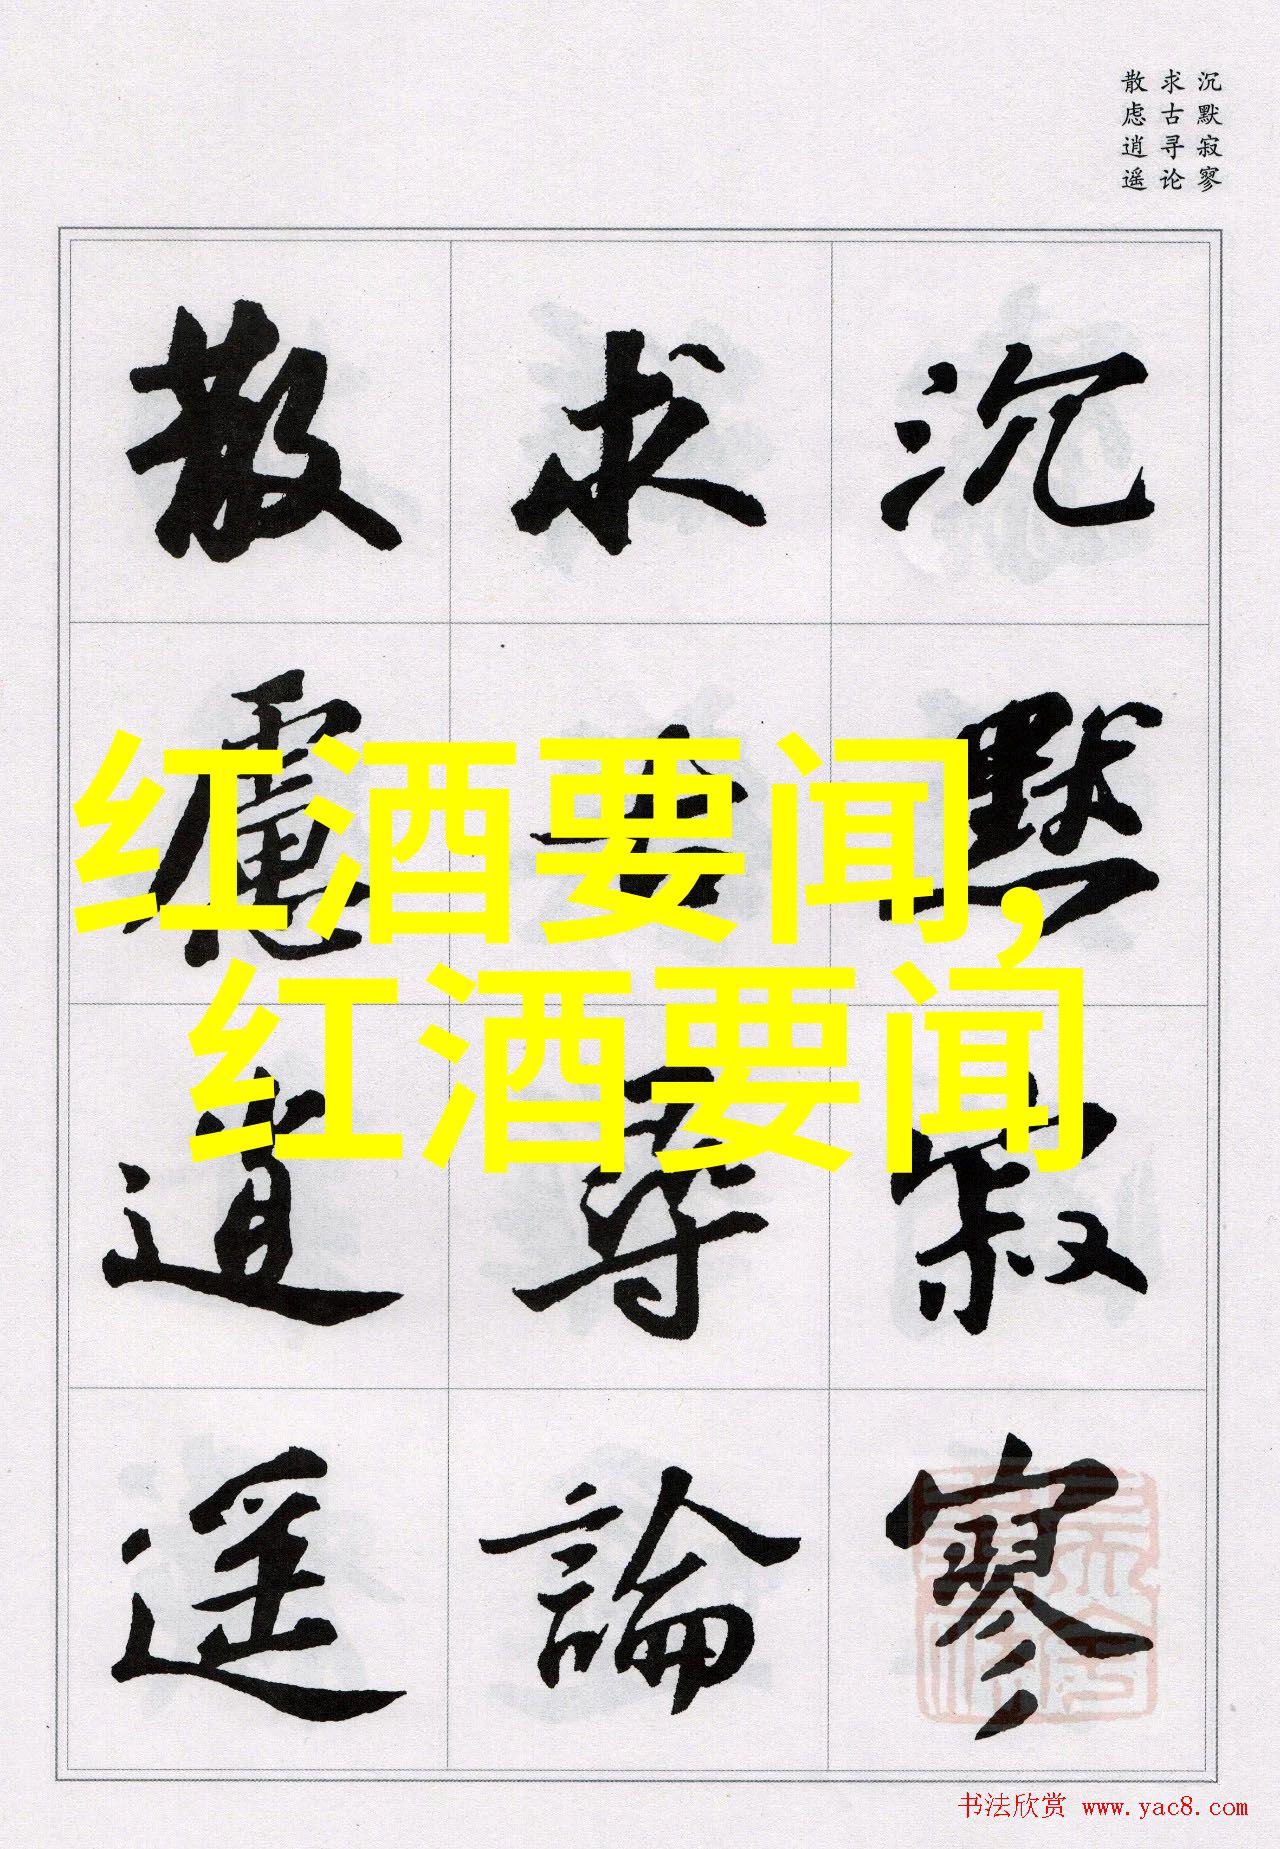 沉默寂寥
求古寻论
散虑逍遥
沉默寂寥
求古尋論
散慮逍遥
红酒要闻,
红酒要闻
书法欣赏 www.yac8.com